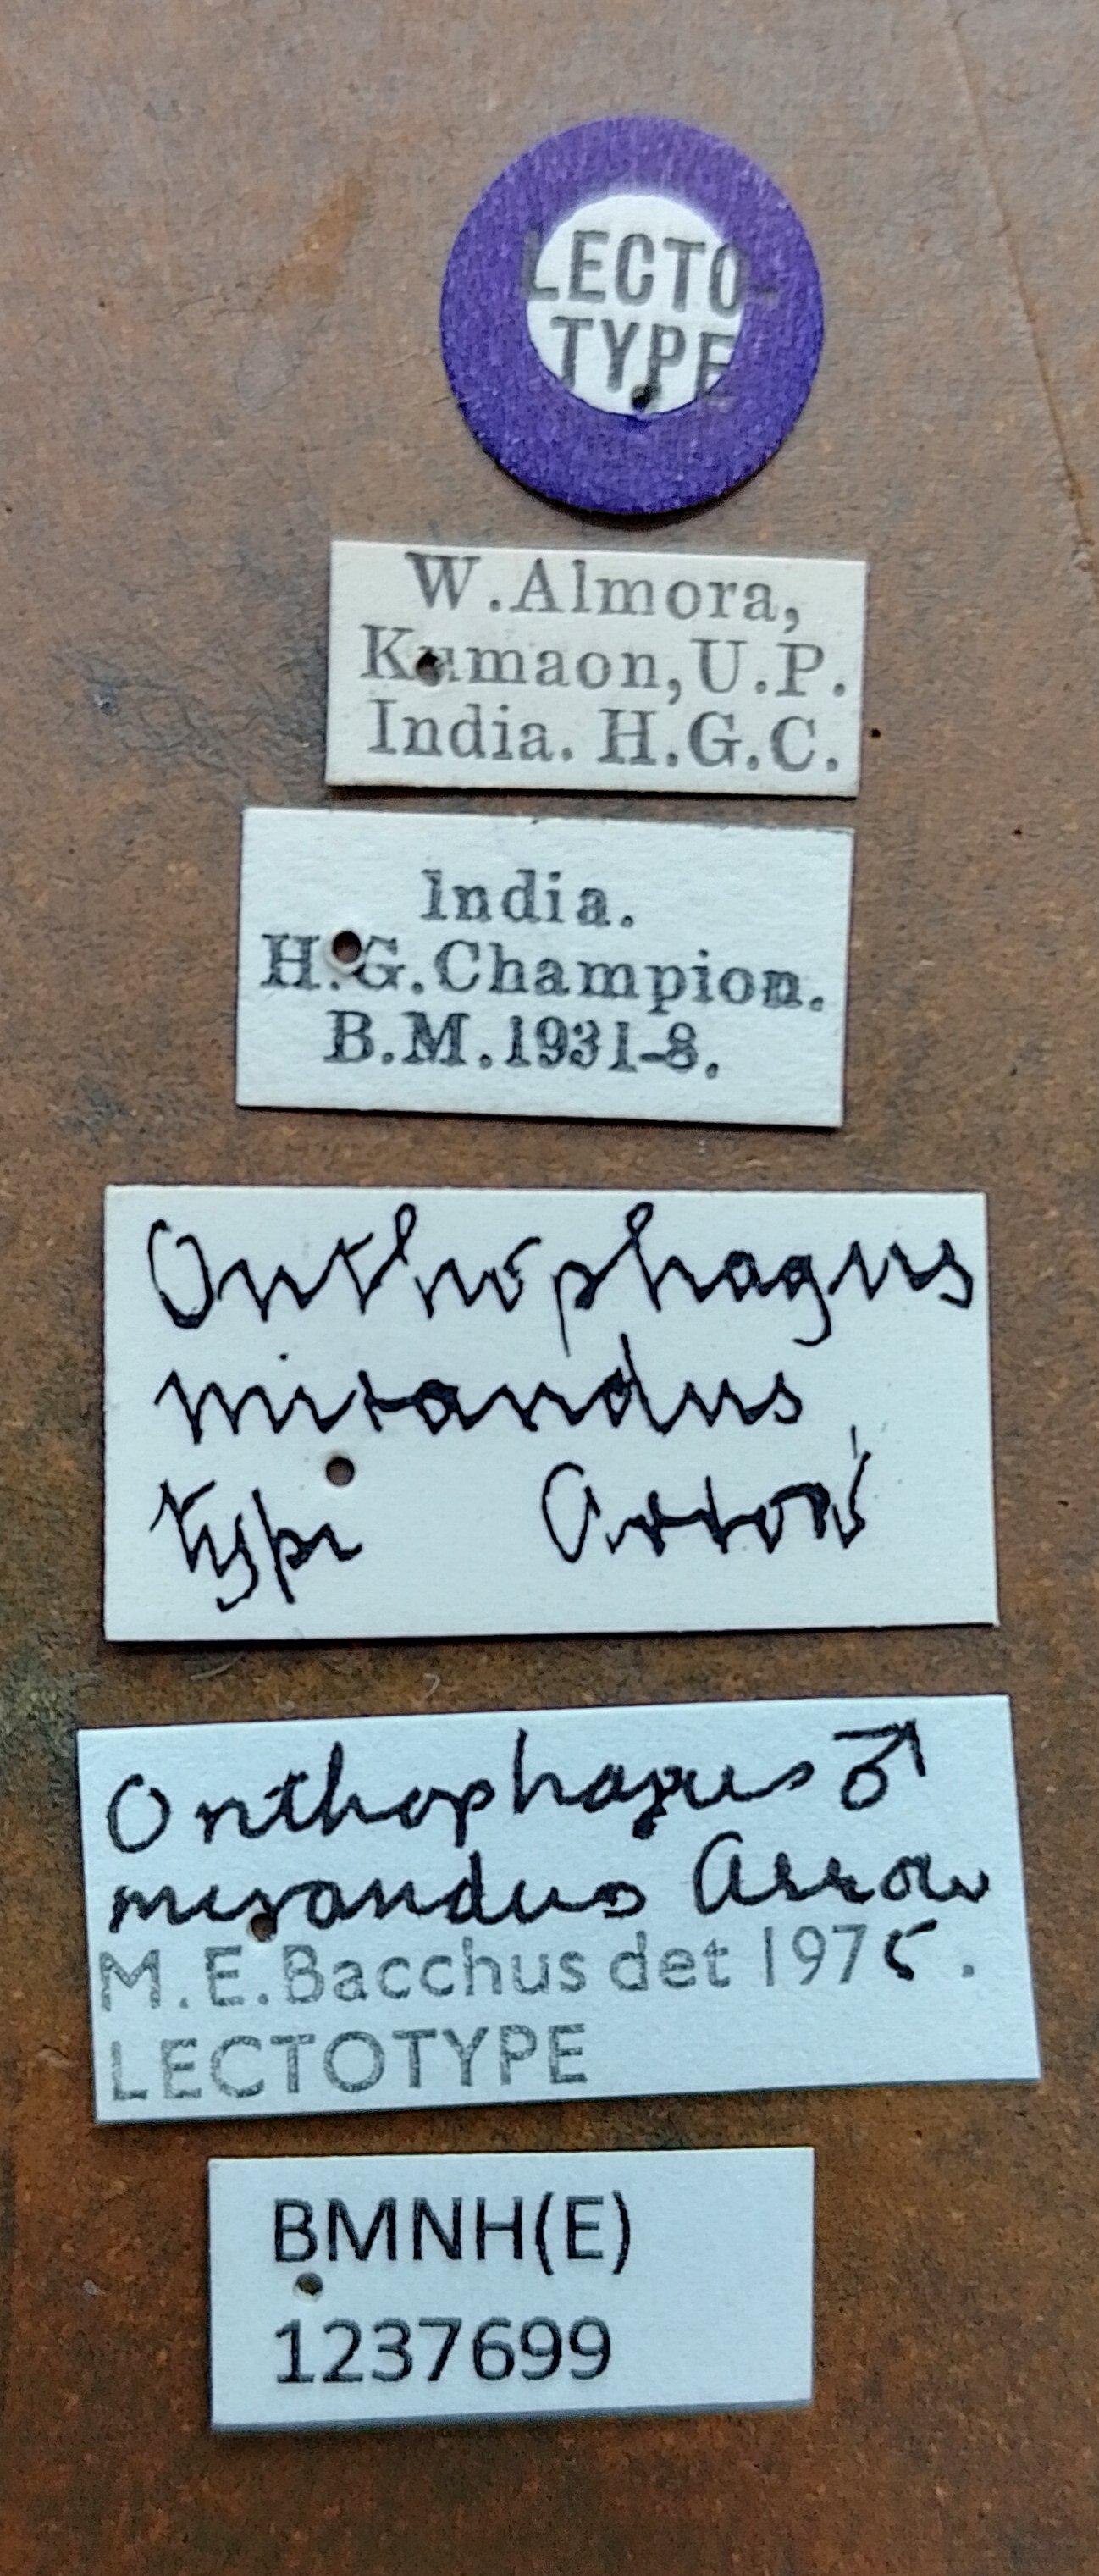 LECTO-
TYPE
W.Almora,
Kumaon, U.P.
India. H.G.C.
India.
H.G.Champion.
B.M.1931-8.
Onthophagus
mirandus
type Arrow
Onthophagus ♂
mirandus Arrow
M.E.Bacchus det 1975.
LECTOTYPE
BMNH(E)
1237699